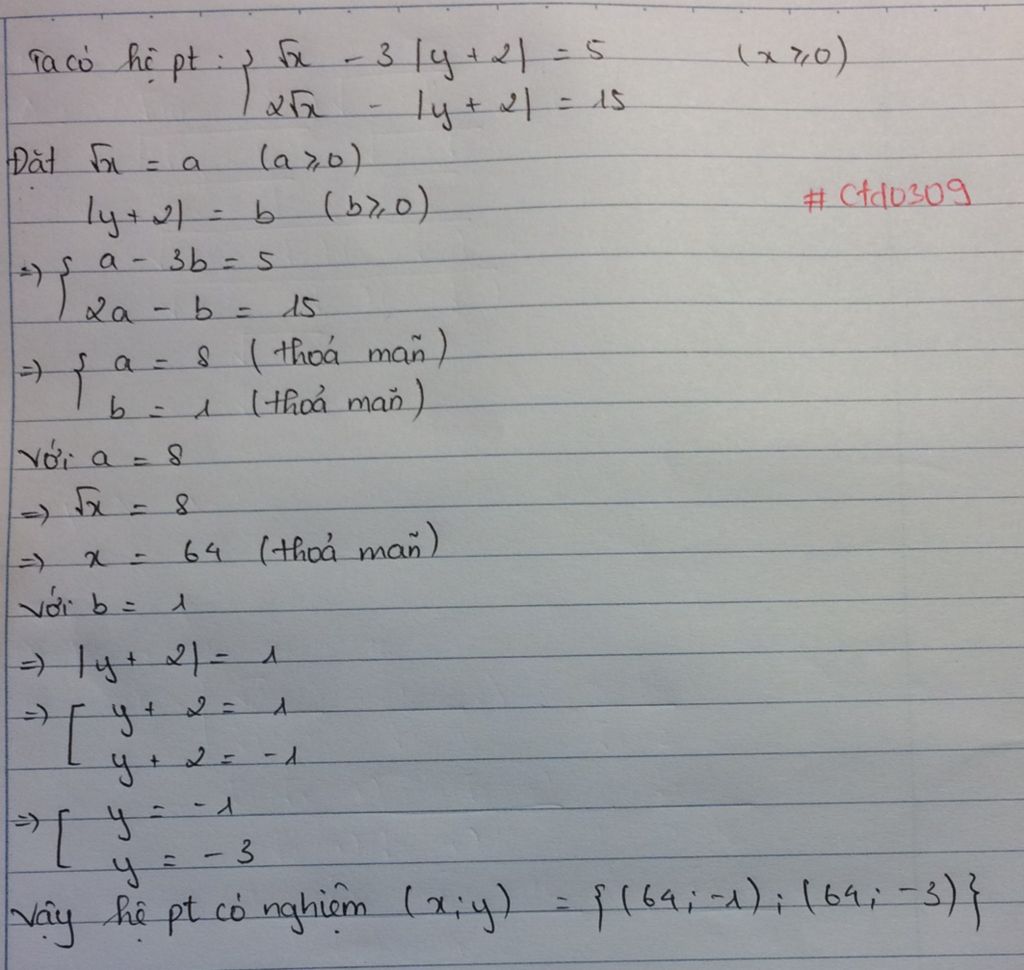 Ta có hệ pt : { √x - 3 |y + 2| = 5 (x ⩾ 0)
2√x - |y + 2| = 15
Đặt √x = a (a ⩾ 0)
|y + 2| = b (b ⩾ 0)
# Cfd0309
=> { a - 3b = 5
2a - b = 15
=> { a = 8 (thoả mãn)
b = 1 (thoả mãn)
Với a = 8
=> √x = 8
=> x = 64 (thoả mãn)
Với b = 1
=> |y + 2| = 1
=> [ y + 2 = 1
y + 2 = -1
=> [ y = -1
y = -3
Vậy hệ pt có nghiệm (x; y) = {(64; -1); (64; -3)}